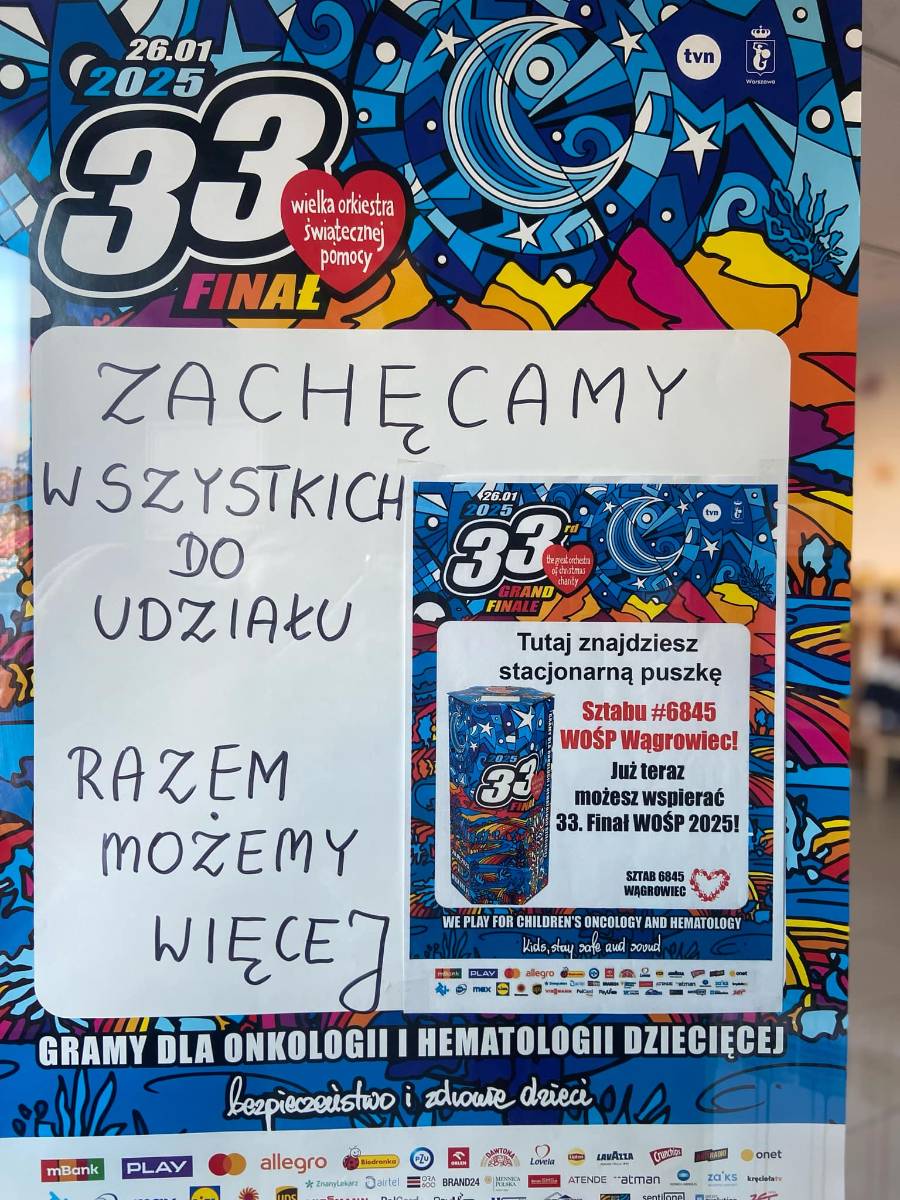 26.01
2025
33
wielka orkiestra
świątecznej
pomocy
FINAŁ
tvn
Warszawa
ZACHĘCAMY
WSZYSTKICH
DO
UDZIAŁU
RAZEM
MOŻEMY
WIĘCEJ
26.01
2025
33rd
the great orchestra
of christmas
charity
GRAND
FINALE
tvn
Tutaj znajdziesz
stacjonarną puszkę
2025
33
FINAŁ
Sztabu #6845
WOŚP Wągrowiec!
Już teraz
możesz wspierać
33. Finał WOŚP 2025!
SZTAB 6845
WĄGROWIEC
WE PLAY FOR CHILDREN'S ONCOLOGY AND HEMATOLOGY
Kids, stay safe and sound
mBank PLAY allegro Biedronka onet
max
GRAMY DLA ONKOLOGII I HEMATOLOGII DZIECIĘCEJ
bezpieczeństwo i zdrowie dzieci
mBank PLAY allegro Biedronka PZU ORLEN DAWTONA Lovela LAVAZZA Crunchips onet
ZnanyLekarz airtel BRAND24 MENNICA POLSKA ATENDE atman zaiks kręcioła tv